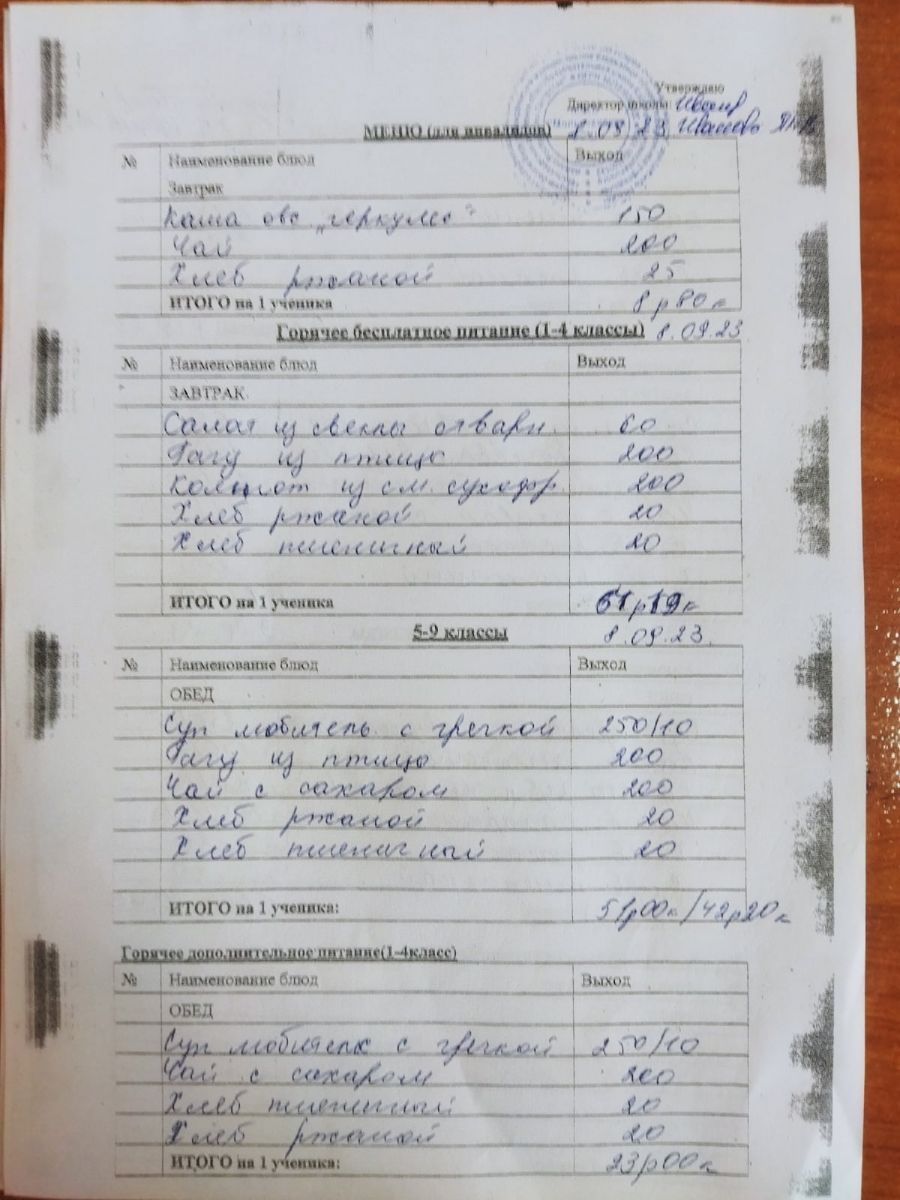 Утверждаю
Директор школы
МЕНЮ (для инвалидов) 8.09.23
№ Наименование блюд Выход
Завтрак
Каша овс "геркулес" 150
Чай 200
Хлеб ржаной 25
ИТОГО на 1 ученика 8р80к
Горячее бесплатное питание (1-4 классы) 8.09.23
№ Наименование блюд Выход
ЗАВТРАК
Салат из свеклы отварн. 60
Рагу из птицы 200
Компот из см. сухофр. 200
Хлеб ржаной 20
Хлеб пшеничный 20
ИТОГО на 1 ученика 61р19к
5-9 классы 8.09.23.
№ Наименование блюд Выход
ОБЕД
Суп любитель с гречкой 250/10
Рагу из птицы 200
Чай с сахаром 200
Хлеб ржаной 20
Хлеб пшеничный 20
ИТОГО на 1 ученика: 51р00к/42р20к
Горячее дополнительное питание(1-4класс)
№ Наименование блюд Выход
ОБЕД
Суп любитель с гречкой 250/10
Чай с сахаром 200
Хлеб пшеничный 20
Хлеб ржаной 20
ИТОГО на 1 ученика: 23р00к